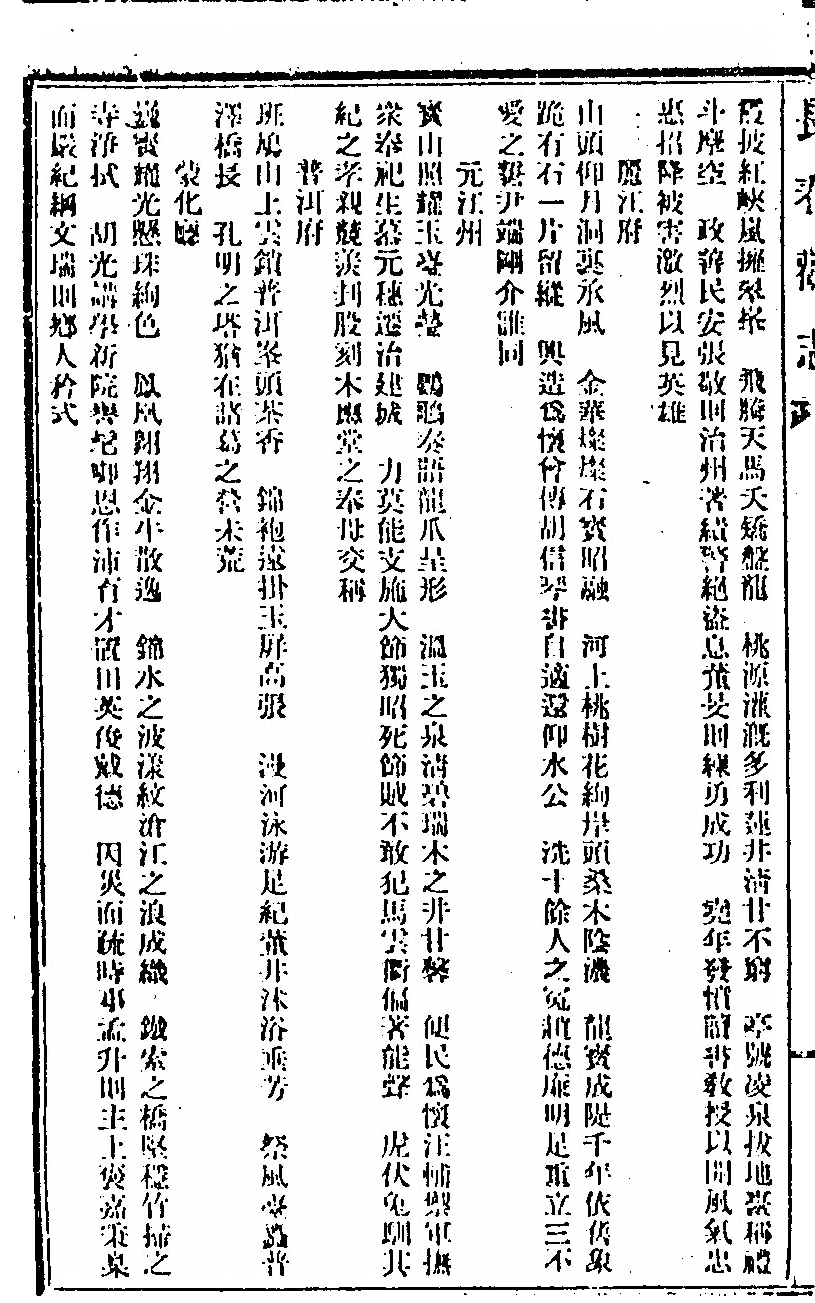 霞披紅峽嵐擁翠 飛騰天馬夭矯盤龍 桃源灌溉多利蓮井清甘不窮 亭號凌泉拔地 稱禮
斗摩空 政善民安張敬則治州著績警絕盜息 則練勇成功 年發憤 書教授以開風氣忠
惎招降被害激烈以見英雄
麗江府
山頭仰月洞裏承風 金華燦燦石寶昭融 河上桃樹花絢岸頭桑木陰濃 龍寶成隄千年依舊象
跪右石一片留縱 興造為懷曾傳胡信琴書自適還仰水公 洗十餘人之冤趙德廉明足重立三不
愛之 尹端剛介誰同
元江州
寶山照耀玉臺光瑩 鸚鵡奏語龍爪呈形 溫玉之泉清碧瑞木之井甘馨 便民為懷汪輔舉軍撫
眾奉祀生墓元穗遷治建城 力莫能支施大節獨昭死節賊不敢犯馬雲衢偏著能聲 虎伏兔馴其
紀之孝親競羨刲股刻木愚堂之奉母交稱
普洱府
班鳩山上雲鎖普洱峯頭茶香 錦袍遠掛玉屏高張 漫河泳游足紀 井沐浴垂芳 祭風臺 普
澤橋長 孔明之塔猶在諸葛之營未荒
蒙化廳
巍寶耀光懸珠絢色 鳳凰翱翔金牛散逸 錦水之波漾紋滄江之浪成織 鐵索之橋堅穩竹掃之
寺淨拭 胡光講學新院與 啣恩作沛育才置田英俊戴德 因災而疏時事孟升則主上褒嘉秉臬
而嚴紀綱文瑞則鄉人矜式